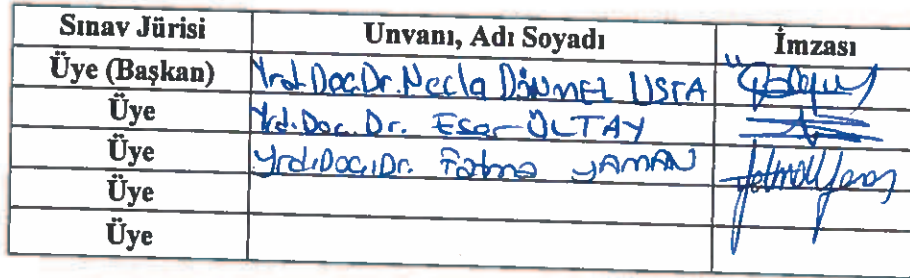 Sınav Jürisi Unvanı, Adı Soyadı İmzası
Üye (Başkan) Yrd.Doç.Dr. Necla DÖNMEZ USTA
Üye Yrd.Doç.Dr. Eser ÜLTAY
Üye Yrd.Doç.Dr. Fatma YAMAN
Üye
Üye